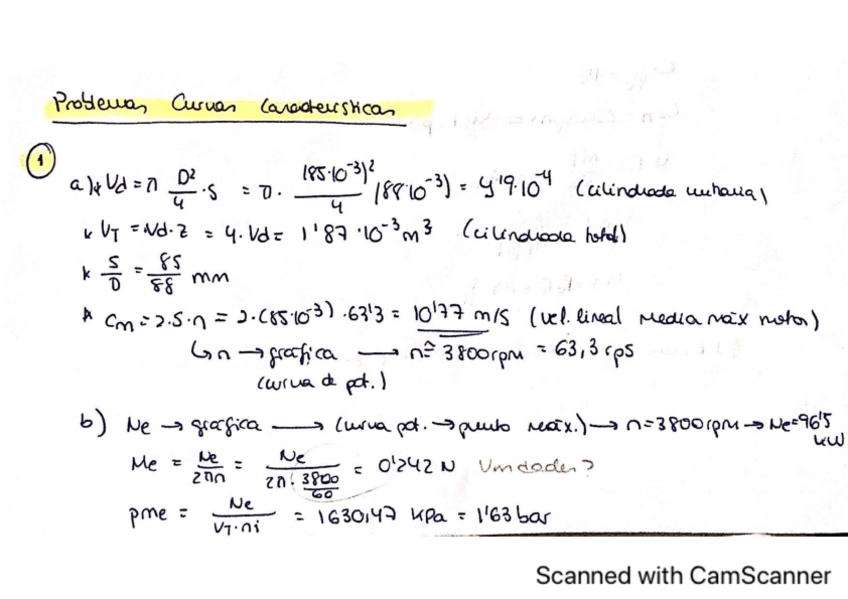 Problemas Curvas Características
1
a) * Vd = π D²/4 · S = π · (85·10⁻³)²/4 (88·10⁻³) = 4'9·10⁻⁴ (cilindrada unitaria)
* VT = Vd·Z = 4·Vd = 1'87·10⁻³ m³ (cilindrada total)
* S/D = 85/88 mm
* Cm = 2·S·n = 2·(85·10⁻³)·63'3 = 10'77 m/s (vel. lineal media máx motor)
↳ n → gráfica → n ≅ 3800 rpm = 63,3 rps
(curva de pot.)
b) Ne → gráfica → (curva pot. → punto máx.) → n = 3800 rpm → Ne = 96'5 kW
Me = Ne/2πn = Ne/(2π · 3800/60) = 0'242 N Unidades?
pme = Ne/(VT·ni) = 1630,47 kPa = 1'63 bar
Scanned with CamScanner